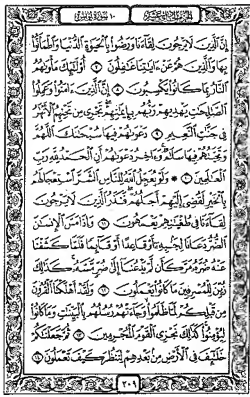 سورة يونس ١٠
إِنَّ ٱلَّذِينَ لَا يَرْجُونَ لِقَآءَنَا وَرَضُوا۟ بِٱلْحَيَوٰةِ ٱلدُّنْيَا وَٱطْمَأَنُّوا۟
بِهَا وَٱلَّذِينَ هُمْ عَنْ ءَايَٰتِنَا غَٰفِلُونَ ٧ أُو۟لَٰٓئِكَ مَأْوَىٰهُمُ
ٱلنَّارُ بِمَا كَانُوا۟ يَكْسِبُونَ ٨ إِنَّ ٱلَّذِينَ ءَامَنُوا۟ وَعَمِلُوا۟
ٱلصَّٰلِحَٰتِ يَهْدِيهِمْ رَبُّهُم بِإِيمَٰنِهِمْ تَجْرِى مِن تَحْتِهِمُ ٱلْأَنْهَٰرُ
فِى جَنَّٰتِ ٱلنَّعِيمِ ٩ دَعْوَىٰهُمْ فِيهَا سُبْحَٰنَكَ ٱللَّهُمَّ
وَتَحِيَّتُهُمْ فِيهَا سَلَٰمٌ وَءَاخِرُ دَعْوَىٰهُمْ أَنِ ٱلْحَمْدُ لِلَّهِ رَبِّ
ٱلْعَٰلَمِينَ ١٠ ۞ وَلَوْ يُعَجِّلُ ٱللَّهُ لِلنَّاسِ ٱلشَّرَّ ٱسْتِعْجَالَهُم
بِٱلْخَيْرِ لَقُضِىَ إِلَيْهِمْ أَجَلُهُمْ فَنَذَرُ ٱلَّذِينَ لَا يَرْجُونَ
لِقَآءَنَا فِى طُغْيَٰنِهِمْ يَعْمَهُونَ ١١ وَإِذَا مَسَّ ٱلْإِنسَٰنَ
ٱلضُّرُّ دَعَانَا لِجَنۢبِهِۦٓ أَوْ قَاعِدًا أَوْ قَآئِمًا فَلَمَّا كَشَفْنَا
عَنْهُ ضُرَّهُۥ مَرَّ كَأَن لَّمْ يَدْعُنَآ إِلَىٰ ضُرٍّ مَّسَّهُۥ كَذَٰلِكَ
زُيِّنَ لِلْمُسْرِفِينَ مَا كَانُوا۟ يَعْمَلُونَ ١٢ وَلَقَدْ أَهْلَكْنَا ٱلْقُرُونَ
مِن قَبْلِكُمْ لَمَّا ظَلَمُوا۟ وَجَآءَتْهُمْ رُسُلُهُم بِٱلْبَيِّنَٰتِ وَمَا كَانُوا۟
لِيُؤْمِنُوا۟ كَذَٰلِكَ نَجْزِى ٱلْقَوْمَ ٱلْمُجْرِمِينَ ١٣ ثُمَّ جَعَلْنَٰكُمْ
خَلَٰٓئِفَ فِى ٱلْأَرْضِ مِنۢ بَعْدِهِمْ لِنَنظُرَ كَيْفَ تَعْمَلُونَ ١٤
٢٠٩